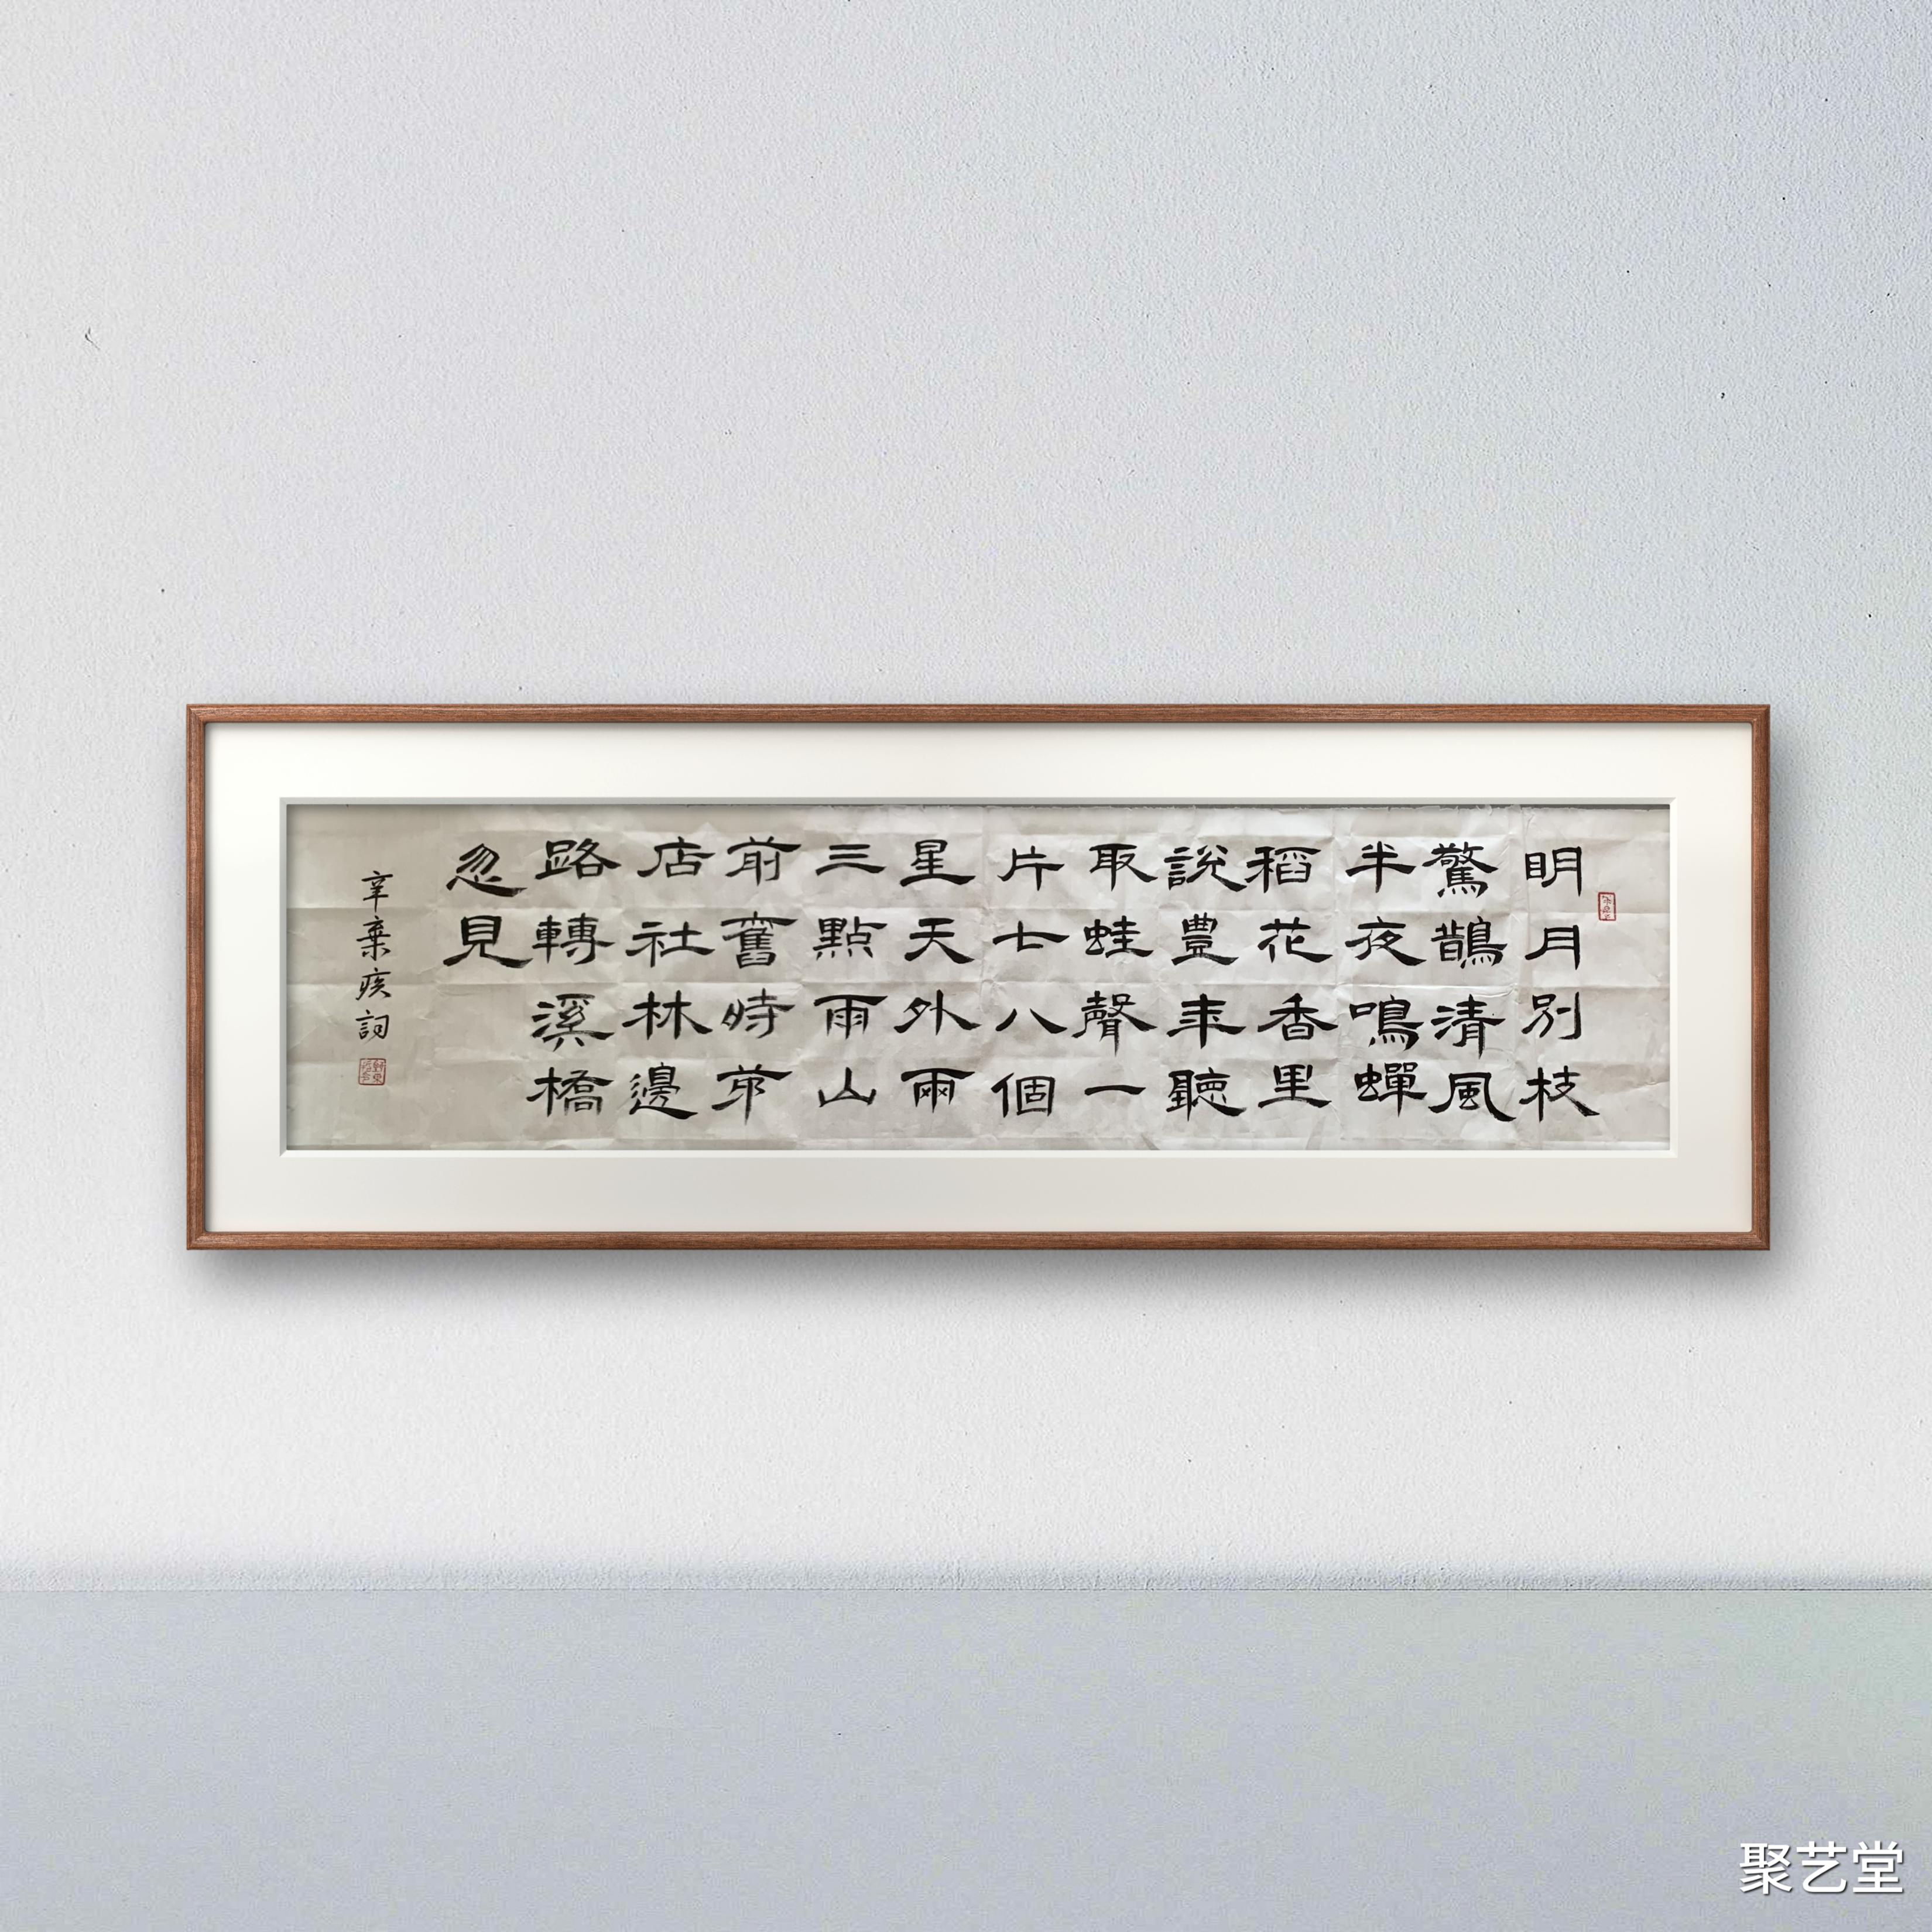 明月別枝
驚鵲清風
半夜鳴蟬
稻花香里
說豊年聽
取蛙聲一
片七八個
星天外兩
三點雨山
前舊時茅
店社林邊
路轉溪橋
忽見
辛棄疾詞
聚艺堂